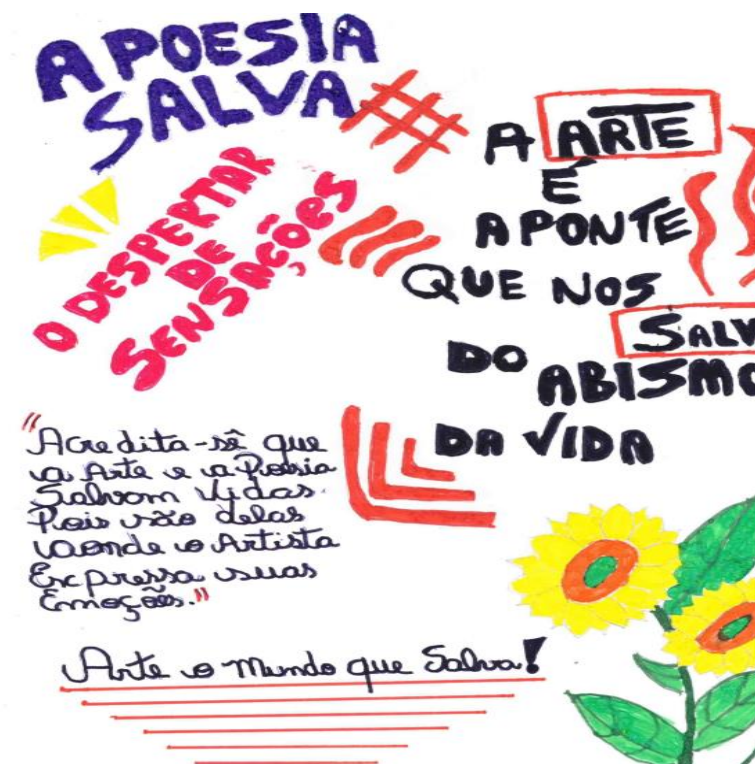 A POESIA
SALVA
O DESPERTAR
DE
SENSAÇÕES
A ARTE
É
A PONTE
QUE NOS
SALV
DO ABISMO
DA VIDA
"Acredita-sê que
a Arte e a Poesia
Salvam Vidas.
Pois são delas
aonde o Artista
Expressa suas
Emoções."
Arte o Mundo que Salva!